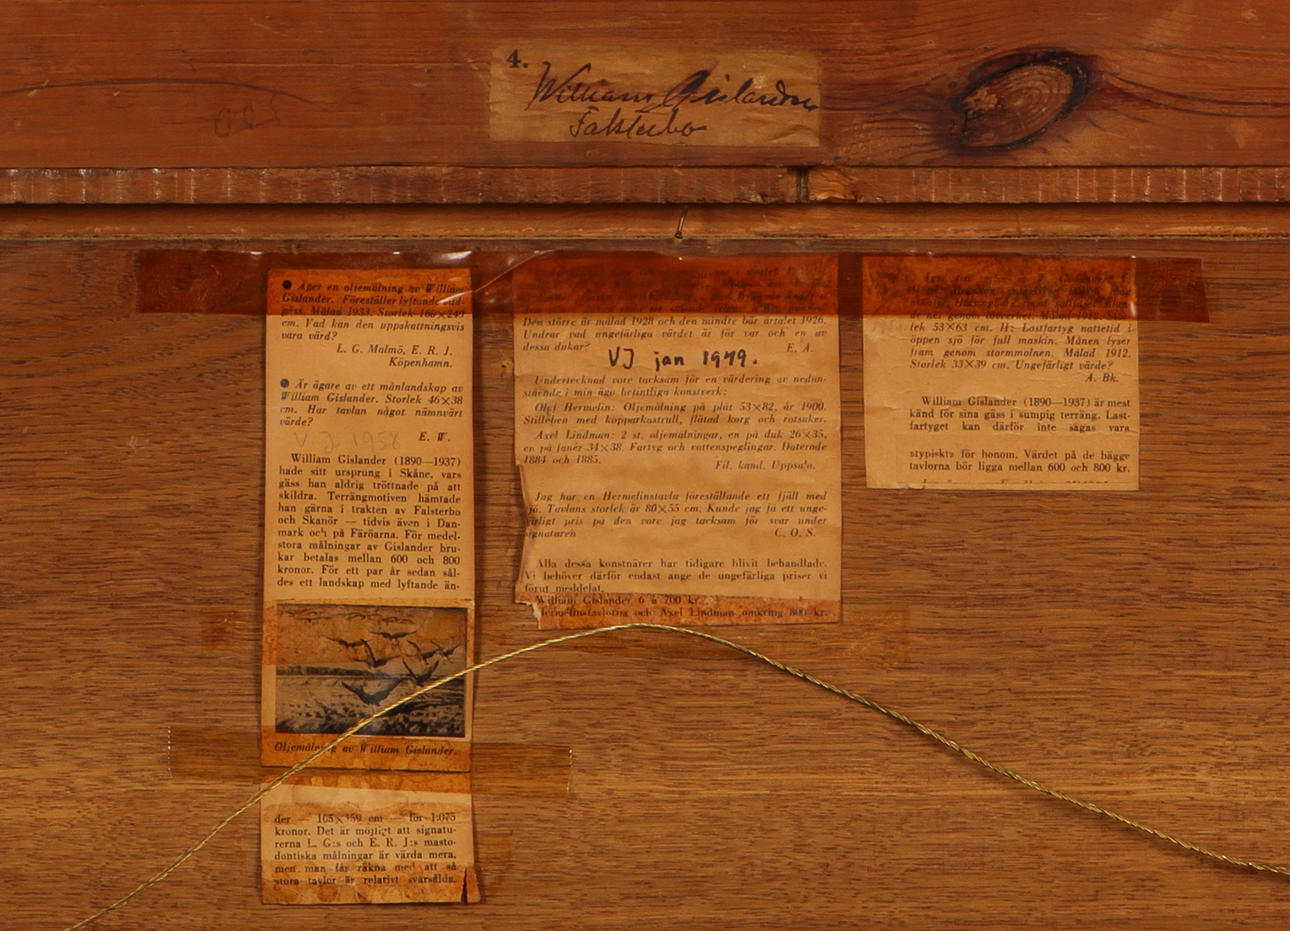 4.
William Gislander
Falsterbo
● Äger en oljemålning av William
Gislander. Föreställer lyftande
Målad 1933. Storlek 166×249
cm. Vad kan den uppskattningsvis
vara värd?
L. G. Malmö, E. R. J.
Köpenhamn.
● Är ägare av ett månlandskap av
William Gislander. Storlek 46×38
cm. Har tavlan något nämnvärt
värde?
V J 1958
E. W.
William Gislander (1890—1937)
hade sitt ursprung i Skåne, vars
gäss han aldrig tröttnade på att
skildra. Terrängmotiven hämtade
han gärna i trakten av Falsterbo
och Skanör — tidvis även i Dan-
mark och på Färöarna. För medel-
stora målningar av Gislander bru-
kar betalas mellan 600 och 800
kronor. För ett par år sedan sål-
des ett landskap med lyftande än-
Oljemålning av William Gislander.
der — 105×159 cm — för 1.075
kronor. Det är möjligt att signatu-
rerna L. G:s och E. R. J:s masto-
dontiska målningar är värda mera,
men man får räkna med att så
stora tavlor är relativt svårsålda.
Den större är målad 1928 och den mindre bär årtalet 1926.
Undrar vad ungefärliga värdet är för var och en av
dessa dukar?
E. A.
VJ jan 1949.
Undertecknad vore tacksam för en värdering av nedan-
stående i min ägo befintliga konstverk:
Olof Hermelin: Oljemålning på plåt 53×82, år 1900.
Stilleben med kopparkastrull, flätad korg och rotsaker.
Axel Lindman: 2 st. oljemålningar, en på duk 26×35,
en på fanér 34×38. Fartyg och vattenspeglingar. Daterade
1884 och 1885.
Fil. kand. Uppsala.
Jag har en Hermelinstavla föreställande ett fjäll med
sjö. Tavlans storlek är 80×55 cm. Kunde jag få ett unge-
färligt pris på den vore jag tacksam för svar under
signaturen
C. O. S.
Alla dessa konstnärer har tidigare blivit behandlade.
Vi behöver därför endast ange de ungefärliga priser vi
förut meddelat.
William Gislander 6 à 700 kr.
Hermelinstavlorna och Axel Lindman omkring 800 kr.
lek 53×63 cm. H: Lastfartyg nattetid i
öppen sjö för full maskin. Månen lyser
fram genom stormmolnen. Målad 1912.
Storlek 33×39 cm. Ungefärligt värde?
A. Bk.
William Gislander (1890—1937) är mest
känd för sina gäss i sumpig terräng. Last-
fartyget kan därför inte sägas vara
stypiskt» för honom. Värdet på de bägge
tavlorna bör ligga mellan 600 och 800 kr.